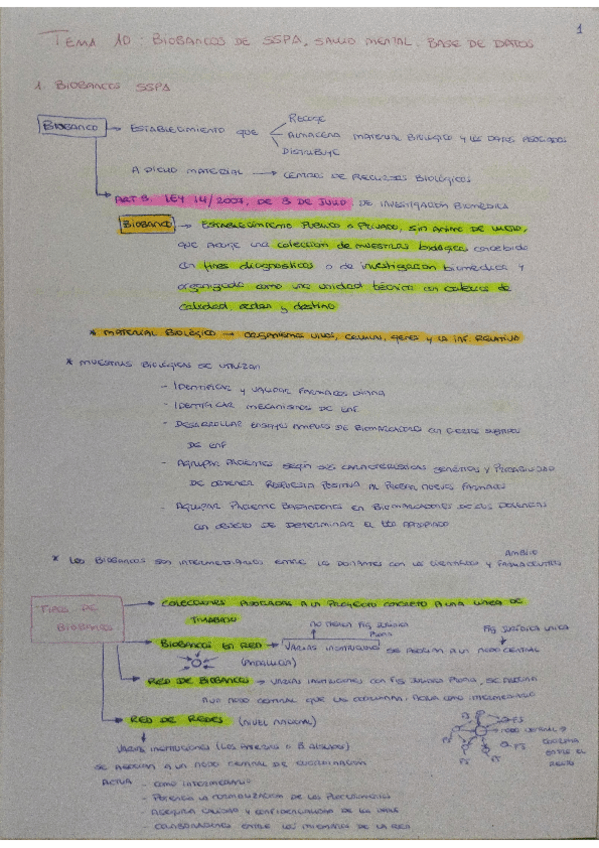 1
TEMA 10: BIOBANCOS DE SSPA, SALUD MENTAL. BASE DE DATOS
1. BIOBANCOS SSPA
RECOGE
BIOBANCO → ESTABLECIMIENTO QUE ALMACENA MATERIAL BIOLÓGICO Y LOS DATOS ASOCIADOS
DISTRIBUYE
A DICHO MATERIAL → CENTROS DE RECURSOS BIOLÓGICOS
ART 3. LEY 14/2007, DE 3 DE JULIO, DE INVESTIGACIÓN BIOMÉDICA
BIOBANCO → ESTABLECIMIENTO PÚBLICO O PRIVADO, SIN ÁNIMO DE LUCRO,
QUE ACOGE UNA COLECCIÓN DE MUESTRAS BIOLÓGICAS CONCEBIDA
CON FINES DIAGNÓSTICOS O DE INVESTIGACIÓN BIOMÉDICA Y
ORGANIZADA COMO UNA UNIDAD TÉCNICA CON CRITERIOS DE
CALIDAD, ORDEN Y DESTINO
* MATERIAL BIOLÓGICO → ORGANISMOS VIVOS, CÉLULAS, GENES Y LA INF. RELATIVA
* MUESTRAS BIOLÓGICAS SE UTILIZAN
- IDENTIFICAR Y VALIDAR FÁRMACOS DIANA
- IDENTIFICAR MECANISMOS DE ENF
- DESARROLLAR ENSAYOS AMPLIOS DE BIOMARCADORES EN CIERTOS
DE ENF
- AGRUPAR PACIENTES SEGÚN SUS CARACTERÍSTICAS GENÉTICAS Y PROBABILIDAD
DE OBTENER RESPUESTA POSITIVA AL PROBAR NUEVOS FÁRMACOS
- AGRUPAR PACIENTE BASÁNDONOS EN BIOMARCADORES DE SUS DOLENCIAS
CON OBJETO DE DETERMINAR EL APROPIADO
* LOS BIOBANCOS SON INTERMEDIARIOS ENTRE LOS DONANTES CON LOS CIENTÍFICOS Y ÁMBITO FARMACÉUTICO
TIPOS DE BIOBANCOS
→ COLECCIONES ASOCIADAS A UN PROYECTO CONCRETO O UNA LÍNEA DE
TRABAJO
NO TIENEN FIG JURÍDICA PROPIA
FIG JURÍDICA ÚNICA
→ BIOBANCOS EN RED → VARIAS INSTITUCIONES SE ASOCIAN A UN NODO CENTRAL
(ANDALUCÍA)
→ RED DE BIOBANCOS → VARIAS INSTITUCIONES CON FIG JURÍDICA PROPIA, SE ASOCIAN
A UN NODO CENTRAL QUE LAS COORDINARÁ. ACTÚA COMO INTERMEDIARIO
→ RED DE REDES (NIVEL NACIONAL)
VARIAS INSTITUCIONES (LOS ANTERIORES O B AISLADOS)
SE ASOCIAN A UN NODO CENTRAL DE COORDINACIÓN
ACTÚA - COMO INTERMEDIARIO
- POTENCIA LA NORMALIZACIÓN DE LOS PROCEDIMIENTOS
- ASEGURA CALIDAD Y CONFIDENCIALIDAD DE LOS DATOS
- COLABORACIONES ENTRE LOS MIEMBROS DE LA RED
NODO CENTRAL →
COORDINA
ENTRE EL
RESTO